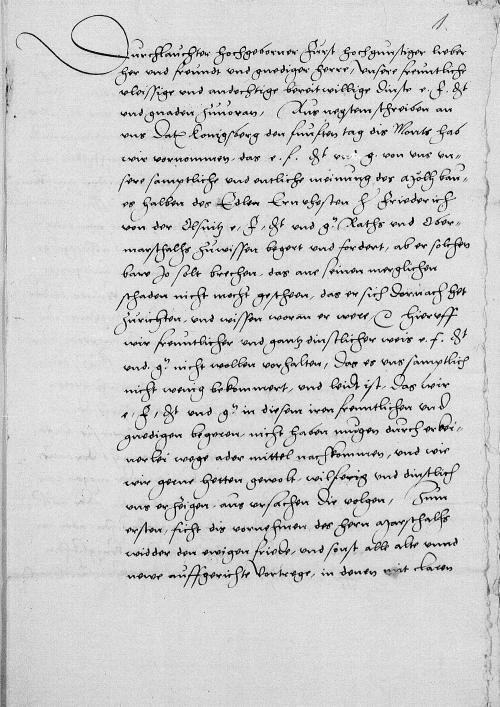 1.
Durchlauchter hochgeborner Furst hochgunstiger lieber
her und freundt und gnediger herre, Unsere freuntliche
vleissige und andechtige bereitwillige dinste e. f. dt
und gnaden zuuoran, Aus negstem schreiben an
uns Dat Konigsberg den funften tag dis Monts hab
wir vornommen, das e. f. dt und g. von uns un-
sere samptliche und entliche meinung des molh bau-
es halben des Edlen Ernvhesten h Friederich
von der Olsnitz e. f. dt und g. Raths und Ober-
marschalhs zuwissen begert und fordert, ab er solchen
baw so solt brechen, das ane seinen merglichen
schaden nicht mocht gescheen, das er sich dornach het
zurichten, und wissen woran er were hieruff
wir freuntlicher und gantz dinstlicher weis e. f. dt
und g. nicht wollen vorhalten, Das es uns samptlich
nicht wenig bekommert, und leidt ist, das wir
e. f. dt und g. in diesem iren freuntlichen und
gnedigen begeren, nicht haben mugen durch erkei-
nerlei wege ader mittel nachkommen, und wie
wir gerne hetten gewolt, wilferig und dinstlich
uns erzeigen, aus ursachen die volgen, Zum
ersten, sicht dis vornehmen des hern Marschalhs
widder den ewigen friede, und sonst alle alte unnd
newe auffgerichte Vortrege, in denen mit claren